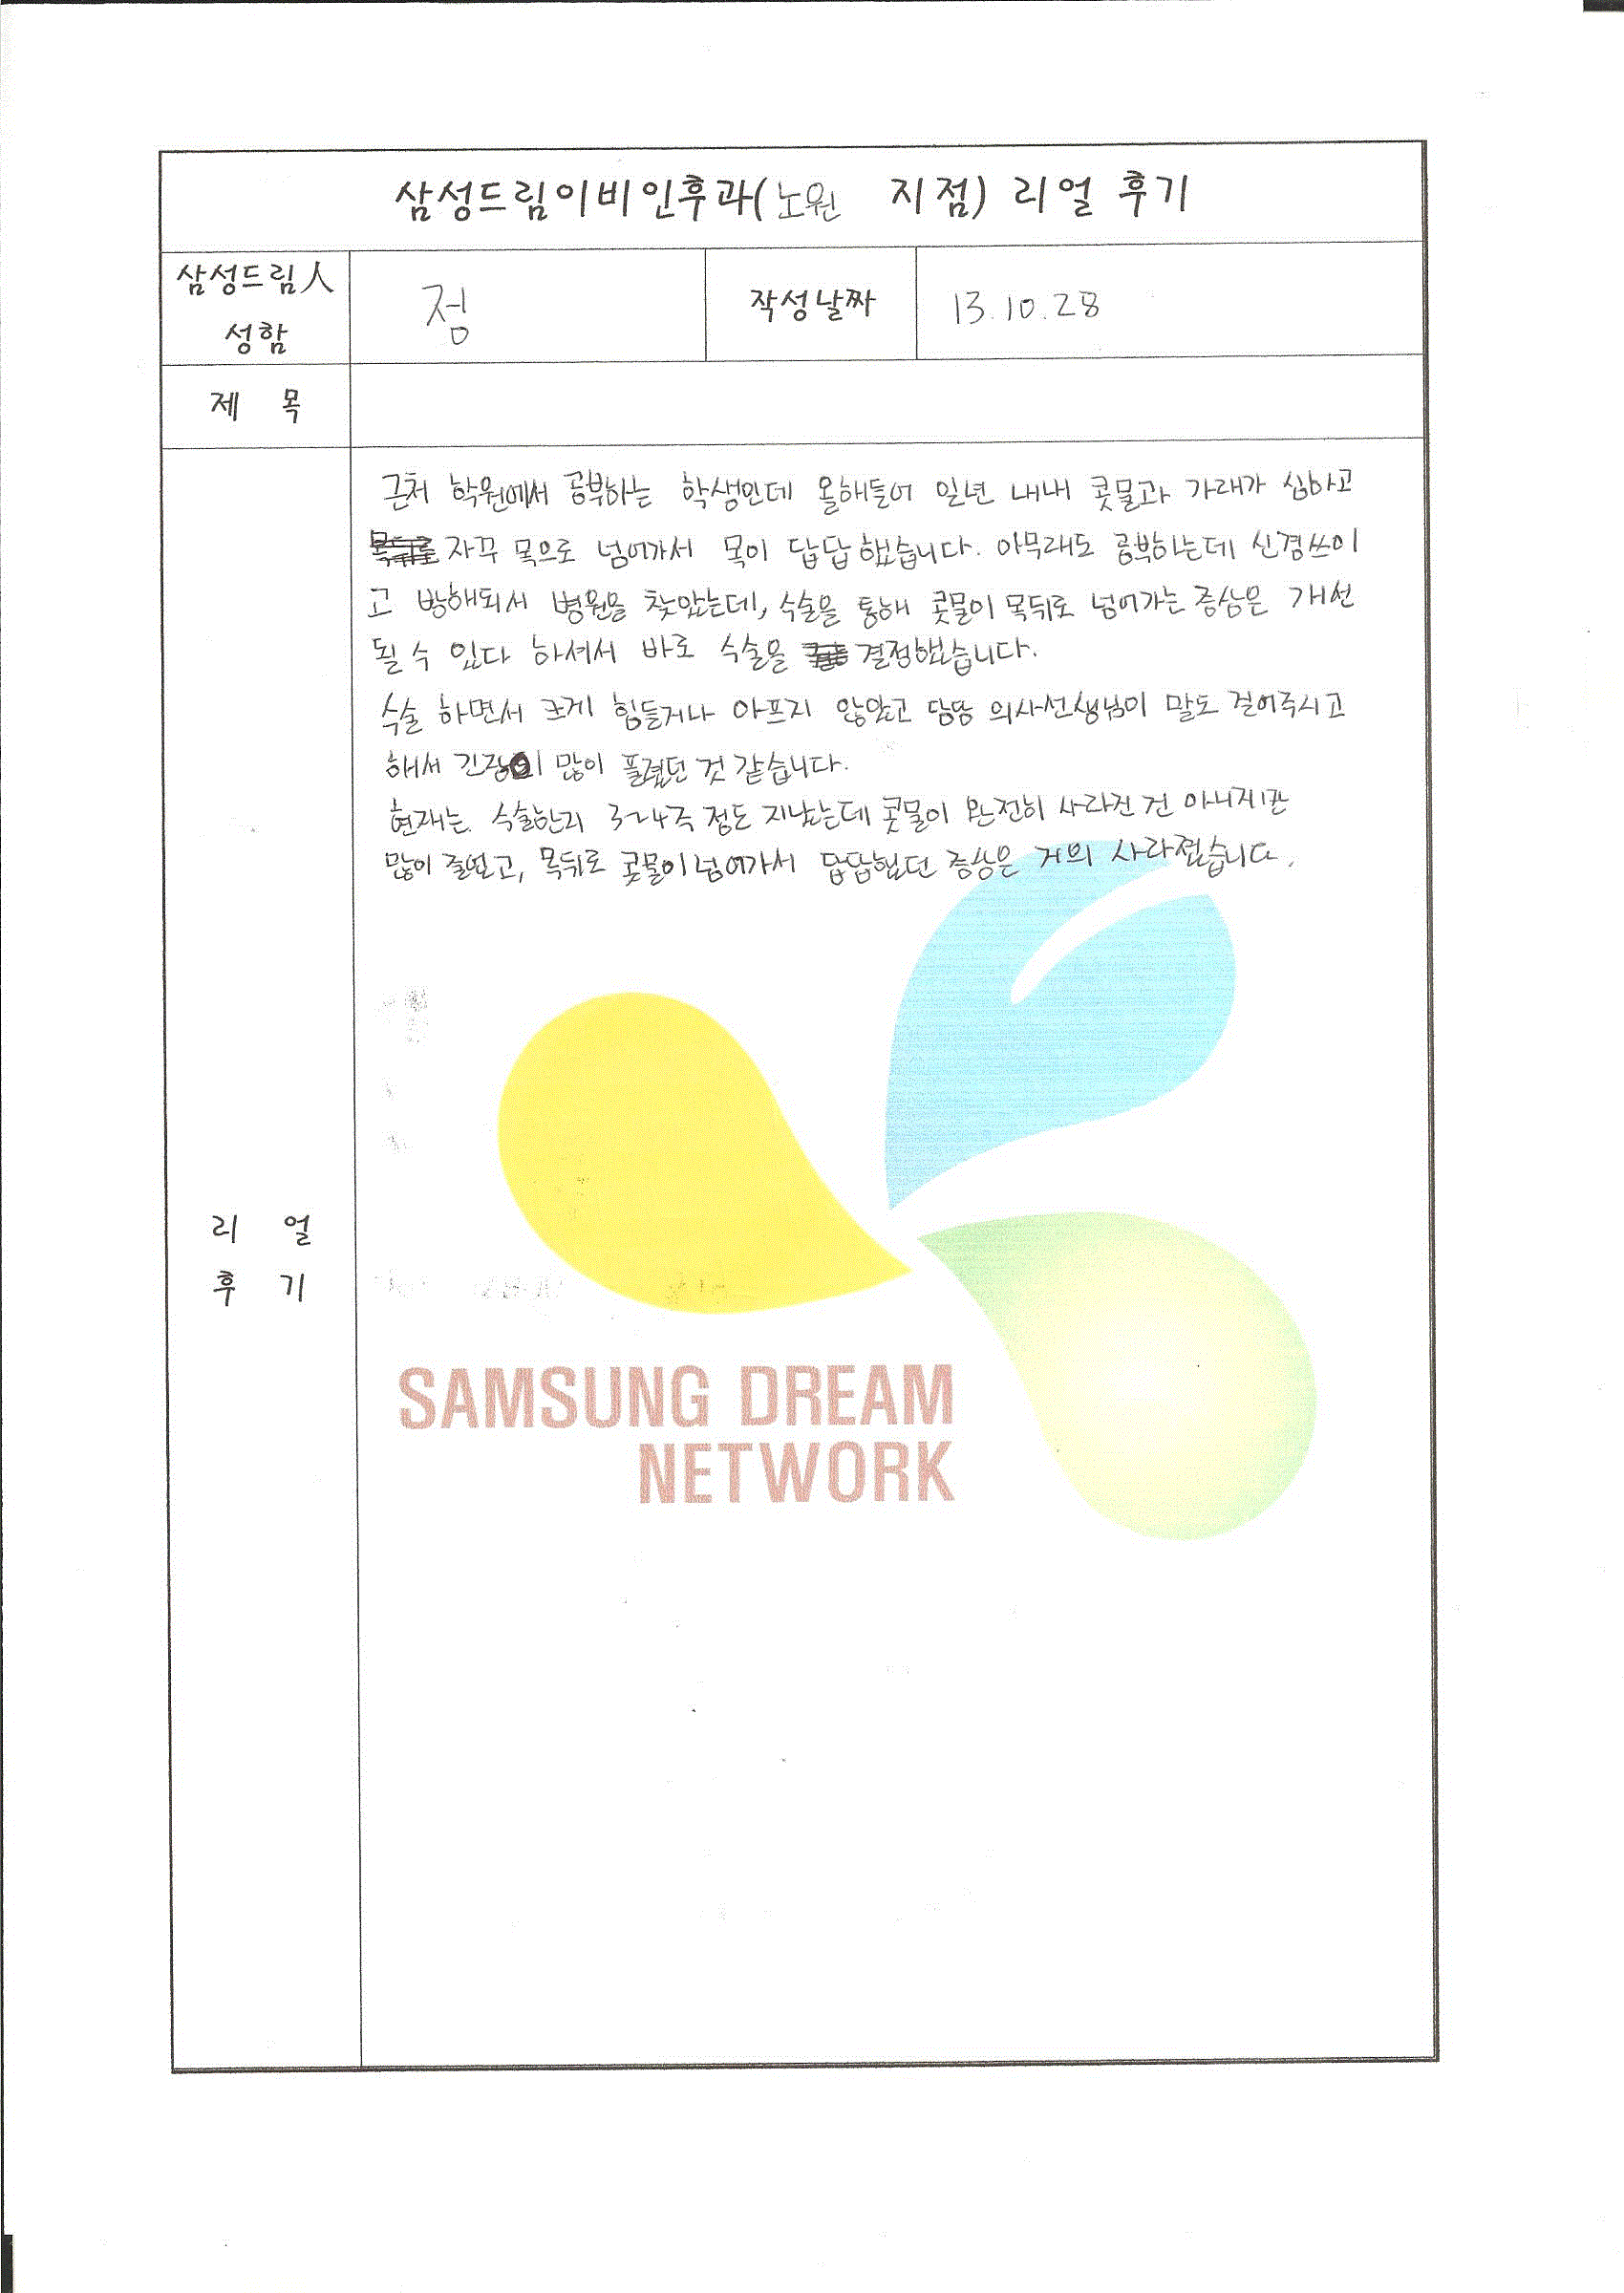 삼성드림이비인후과(노원 지점) 리얼 후기
삼성드림人
성함
정
작성날짜
13.10.28
제 목
근처 학원에서 공부하는 학생인데 올해들어 일년 내내 콧물과 가래가 심하고
자꾸 목으로 넘어가서 목이 답답했습니다. 아무래도 공부하는데 신경쓰이
고 방해되서 병원을 찾았는데, 수술을 통해 콧물이 목뒤로 넘어가는 증상은 개선
될 수 있다 하셔서 바로 수술을 결정했습니다.
수술 하면서 크게 힘들거나 아프지 않았고 담당 의사선생님이 말도 걸어주시고
해서 긴장이 많이 풀렸던 것 같습니다.
현재는 수술한지 3~4주 정도 지났는데 콧물이 완전히 사라진 건 아니지만
많이 줄었고, 목뒤로 콧물이 넘어가서 답답했던 증상은 거의 사라졌습니다.
리 얼
후 기
SAMSUNG DREAM
NETWORK